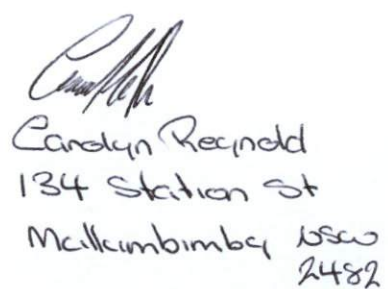 Carolyn Reynold
134 Station St
Mullumbimby NSW
2482